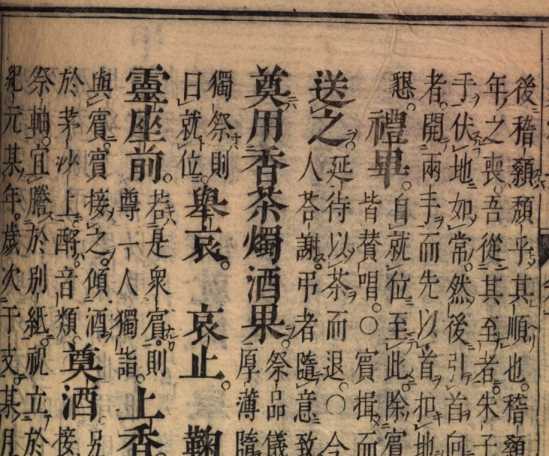 後稽顙頹乎其順也。稽顙
年之喪。吾從其至者。朱子
于伏地如常。然後引首向
者。開兩手而先以首扣地
懇。禮畢。自就位至此。除賓
皆贊唱。○賓揖而
送之。延待以茶而退。○今
人答謝弔者。隨意致
奠用香茶燭酒果。祭品儀
厚薄隨
獨祭則
日就位。舉哀。哀止。鞠
靈座前。若是衆賓。則
尊一人獨詣。上香
與賓。賓接之。傾酒
於茅沙上。酹音類。奠酒。接
祭軸。宜謄於別紙。祝立於
紀元某年。歲次干支。某月